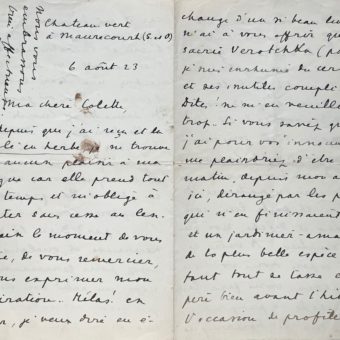 Nous vous
embrassons
Chateau vert
à Maurecourt (S. et O)
6 août 23
Ma chère Colette,
depuis que j'ai reçu et lu
blé en herbe je ne trouve
aucun plaisir à ma
que car elle prend tout
temps et m'oblige à
ter sans cesse au len
ain le moment de vous
de vous remercier,
ous exprimer mon
iration. Hélas! en
r, je veux dire en é-
change d'un si beau
n'ai à vous offrir
sacrée Verotchka
je suis enrhumé du cer
et des inutiles compli
Dites! ne m'en veuille
trop. Si vous saviez
j'ai pour vos
me plaindriez d'être
matin, depuis mon
ici, dérangé par les
qui n'en finissaient
et un jardinier-ama
de la plus belle espèce
tout de casse
péré bien avant l'hi
l'occasion de profite